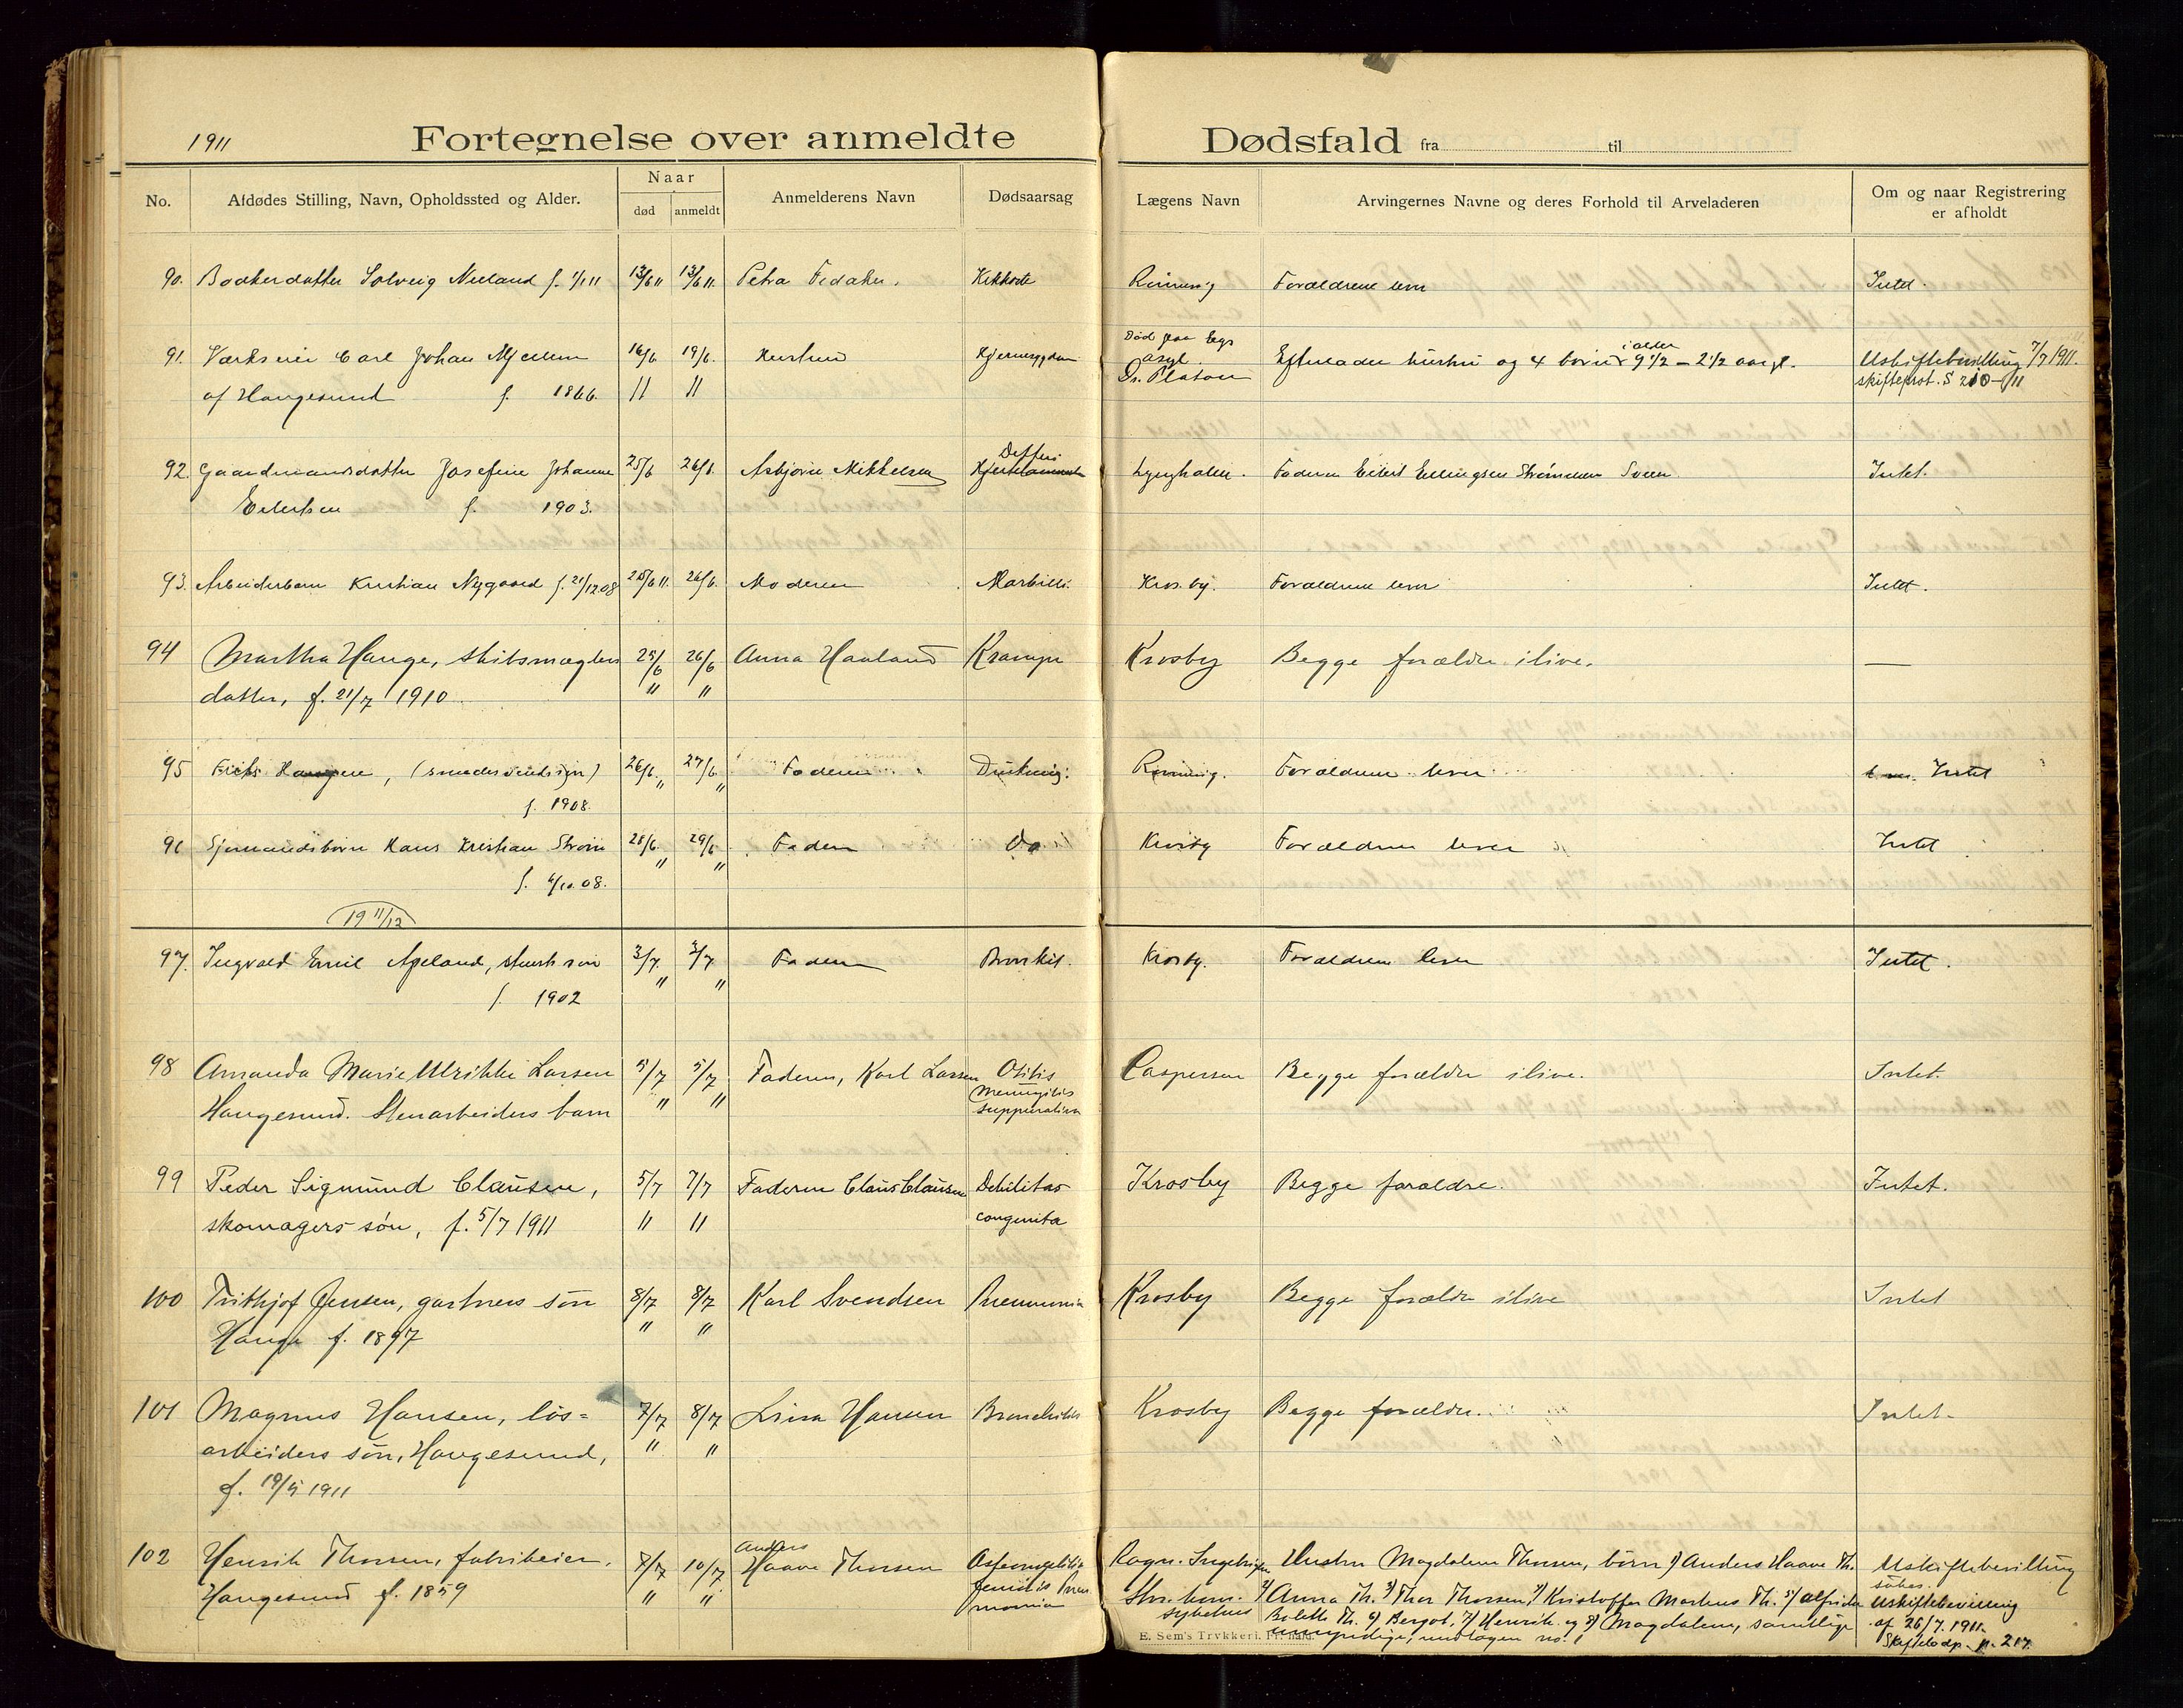 1911 Fortegnelse over anmeldte Dødsfald fra til
No. Afdødes Stilling, Navn, Opholdssted og Alder. Naar død anmeldt Anmelderens Navn Dødsaarsag Lægens Navn Arvingernes Navne og deres Forhold til Arveladeren Om og naar Registrering er afholdt
90. Bødkerdatter Solveig f. 1/1 11 13/6 11 13/6 11. Petra Kikhoste Forældrene lever Intet.
91. Værkseier Carl Johan 16/6 19/6. Hustru Død paa Egs asyl. Dr. Platou Efterlader hustru og 4 børn i alder 9 1/2 – 2 1/2 aar gl. Uskiftebevilling 7/7 1911.
af Haugesund f. 1866. 11 11 skifteprot. S 210 – 11
92. Gaardmandsdatter Josefine Johanne 25/6 26/6. Asbjørn Mikkelsen Difteri Lynghallen. Faderen Eilert Ellingsen Strømmen Sveen Intet.
Eilertsen f. 1903.
93. Arbeiderbarn Kristian Nygaard f. 21/12 08 25/6 11. 26/6. Moderen Morbilli. Krosby. Forældrene lever Intet.
94 Martha Hauge, skibsmæglers 25/6 26/6 Anna Haaland Krampe Krosby Begge forældre ilive. —
datter, f. 21/7 1910 " "
95 Hangere, (smedesvends søn) 26/6 " 27/6 " Faderen Rønnevig. Forældrene lever Intet
f. 1908.
96 Sjømandsbørn Hans Kristian Strøm 28/6. " 29/6 " Faderen Do Krosby Forældrene lever Intet
f. 4/10. 08.
19 11/12
97. Ingvald Emil Apeland, søn 3/7. " 3/7 " Faderen Bronkit. Krosby. Forældrene lever Intet.
f. 1902
98 Amanda Marie Ulrikke Larsen 5/7 5/7 Faderen, Karl Larsen Otitis Caspersen Begge forældre ilive. Intet.
Haugesund. Stenarbeiders barn " " Meningitis suppurativa
99 Peder Sigmund Clausen, 5/7 7/7 Faderen Claus Clausen Debilitas Krosby Begge forældre. Intet.
skomagers søn, f. 5/7 1911 11 11 congenita
100 Frithjof Jensen, gartners søn 8/7 8/7 Karl Svendsen Pneumonia Krosby Begge forældre ilive Intet
Hauge f. 1897 " "
101 Magnus Hansen, løs= 7/7 8/7 Lina Hansen Bronchitis Krosby Begge forældre. Intet.
arbeiders søn, Haugesund, " "
f. 19/5 1911
102 Henrik Thorsen, fabrikeier. 7/7 10/7 Anders Haave Thorsen Ragn. Ingebrigtsen Hustru Magdalene Thorsen, børn 1) Anders Haave Th. Uskiftebevilling søkes.
Haugesund f. 1859 " " 2) Anna Th. 3) Thor Thorsen, 4) Kristoffer Markus Th. 5) Alfrida Uskiftebevilling
sykehus Bolette Th. 6) Bergot, 7) Henrik og 8) Magdalene, samtlige af 26/7. 1911.
umyndige, undtagen no. 1 p. 217.
E. Sem's Trykkeri, Fr.hald.